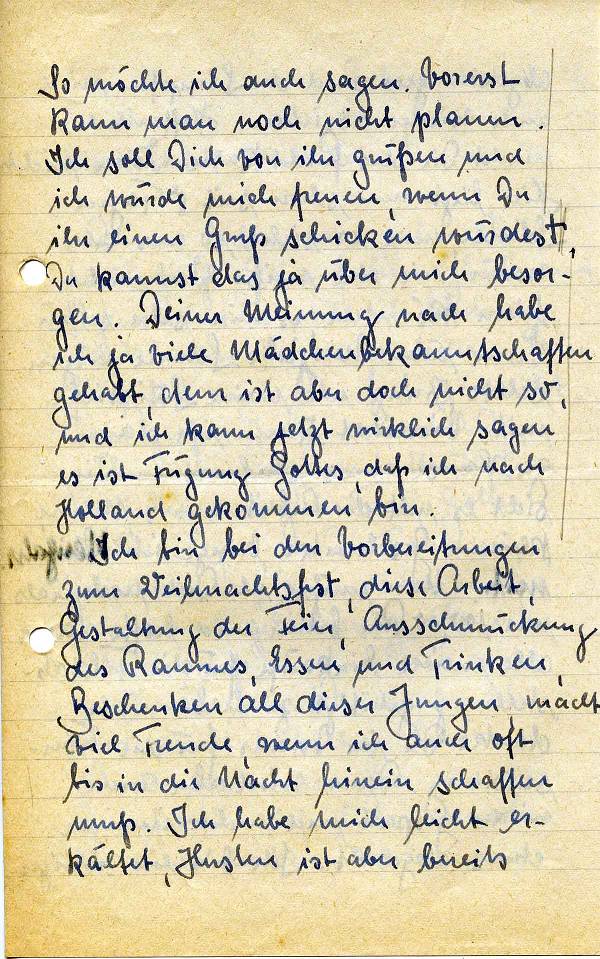 So möchte ich auch sagen. Vorerst
kann man noch nicht planen.
Ich soll Dich von ihr grüßen und
ich würde mich freuen, wenn Du
ihr einen Gruß schicken würdest,
Du kannst das ja über mich besor-
gen. Deiner Meinung nach habe
ich ja viele Mädchenbekanntschaften
gehabt, dem ist aber doch nicht so,
und ich kann jetzt wirklich sagen
es ist Fügung Gottes, daß ich nach
Holland gekommen bin.
Ich bin bei den Vorbereitungen
zum Weihnachtsfest, diese Arbeit,
Gestaltung der Feier, Ausschmückung
des Raumes, Essen und Trinken,
Beschenken all dieser Jungen, macht
viel Freude, wenn ich auch oft
bis in die Nacht hinein schaffen
muß. Ich habe mich leicht er-
kältet, Husten ist aber bereits